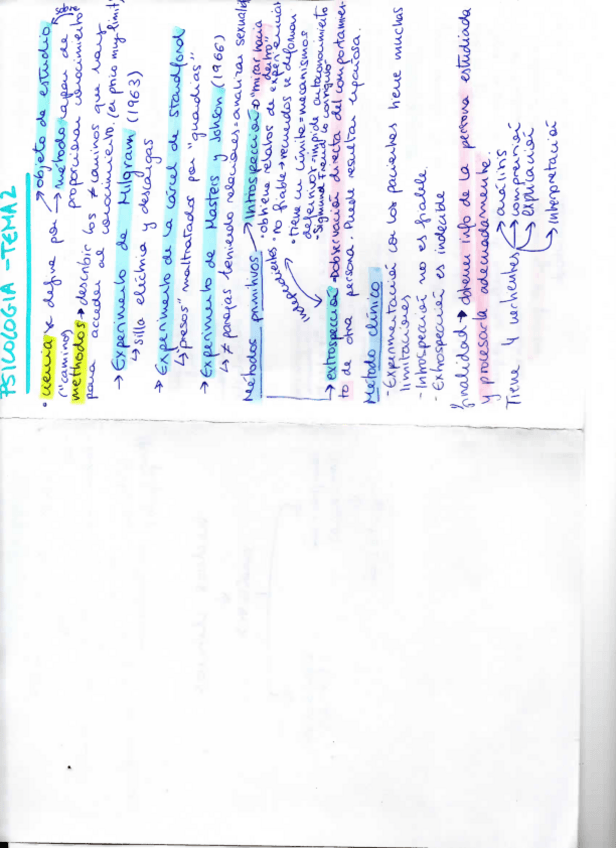 PSICOLOGIA - TEMA 2
• ciencia se define por → objeto de estudio
→ método capaz de
("camino") proporcionar conocimiento
methodos → describir los ≠ caminos que hay
para acceder al conocimiento. (en psico muy limit
→ Experimento de Milgram (1963)
↳ silla eléctrica y descargas
→ Experimento de la cárcel de standford
↳ "presos" maltratados por "guardias"
→ Experimento de Masters y Johson (1966)
↳ ≠ parejas teniendo relaciones = analizar sexualid
Métodos primitivos → Introspección → "mirar hacia
dentro"
• obtiene relatos de experiencias
• no fiable → recuerdos se deforman
• Tiene un límite = mecanismos
defensivos = impide autoconocimiento
- Segmund Freud lo consiguió
→ extrospección → observación directa del comportamien-
to de otra persona. Puede resultar engañosa.
Método clínico
- Experimentación con los pacientes tiene muchas
limitaciones
- Introspección no es fiable.
- Extrospección es indecible
finalidad → obtener info de la persona estudiada
y procesarla adecuadamente.
Tiene 4 vertientes → análisis
→ comprensión
→ explicación
→ interpretación